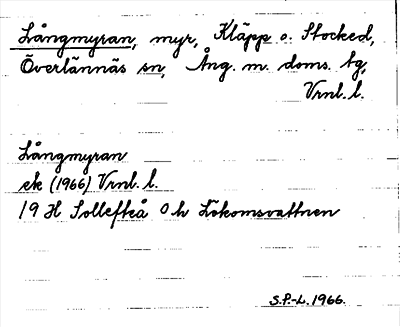 Långmyran, myr, Kläpp o. Stocked,
Överlännäs sn, Ång. m. doms. tg,
Vrnl. l.
Långmyran
ek (1966) Vrnl. l.
19 H Sollefteå O h Lökomsvattnen
S.P.-L. 1966.